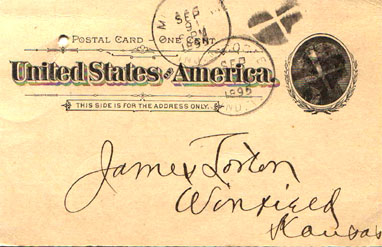 POSTAL CARD – ONE CENT
United States of America.
THIS SIDE IS FOR THE ADDRESS ONLY.
SEP
1895
SEP
1895
James
Winfield
Kansas